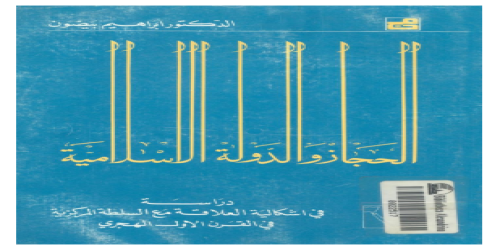 الدكتور ابراهيم بيضون
الحجاز والدولة الاسلامية
دراسة
في اشكالية العلاقة مع السلطة المركزية
في القرن الاول الهجري